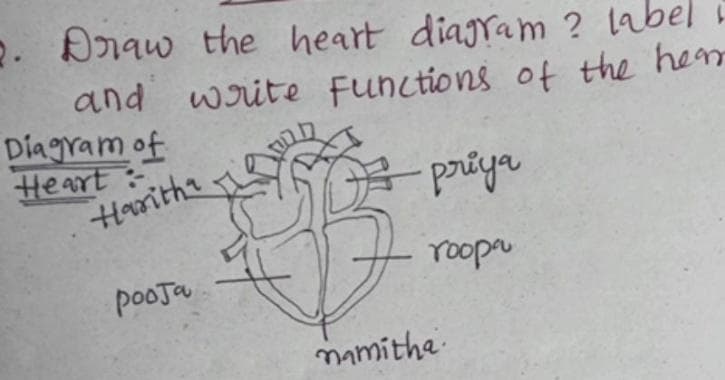 Draw the heart diagram ? label
and write Functions of the
Diagram of
Heart :-
Haritha
priya
roopa
pooja
namitha.